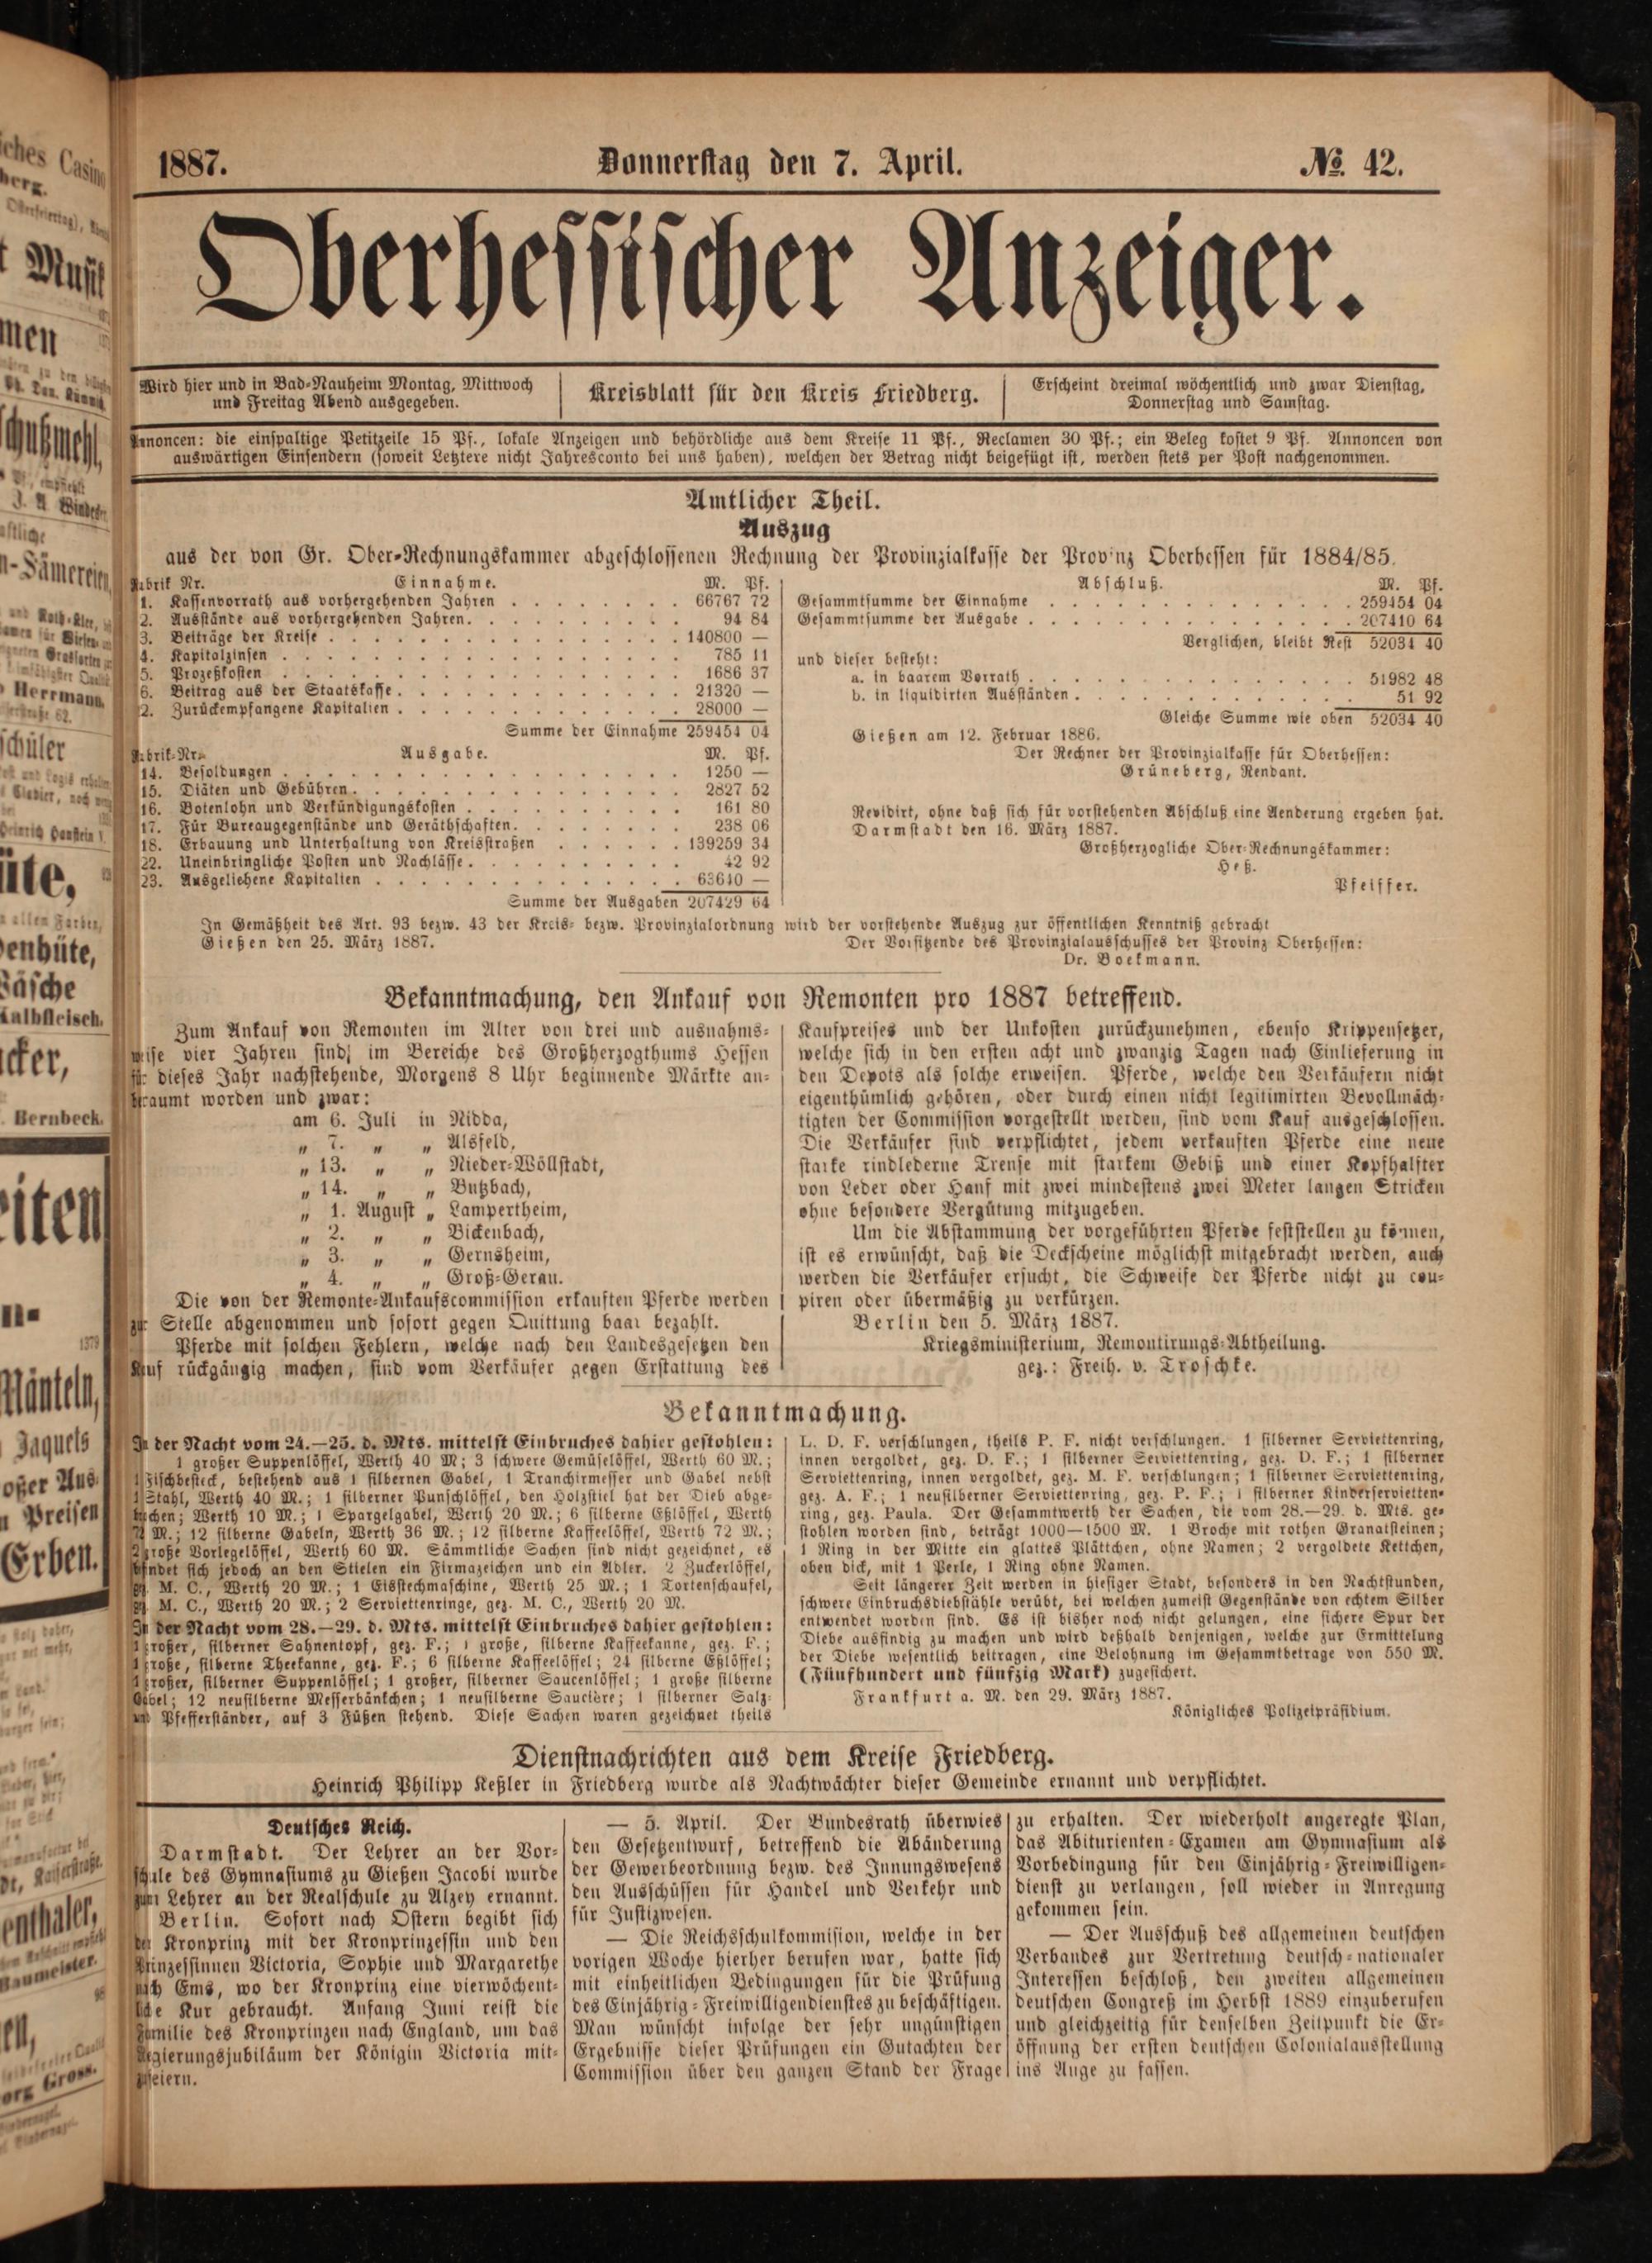 1887.
Donnerstag den 7. April.
№. 42.
Oberhessischer Anzeiger.
Wird hier und in Bad-Nauheim Montag, Mittwoch
und Freitag Abend ausgegeben.
Kreisblatt für den Kreis Friedberg.
Erscheint dreimal wöchentlich und zwar Dienstag,
Donnerstag und Samstag.
Annoncen: die einspaltige Petitzeile 15 Pf., lokale Anzeigen und behördliche aus dem Kreise 11 Pf., Reclamen 30 Pf.; ein Beleg kostet 9 Pf. Annoncen von
auswärtigen Einsendern (soweit Letztere nicht Jahresconto bei uns haben), welchen der Betrag nicht beigefügt ist, werden stets per Post nachgenommen.
Amtlicher Theil.
Auszug
aus der von Gr. Ober-Rechnungskammer abgeschlossenen Rechnung der Provinzialkasse der Provinz Oberhessen für 1884/85.
Rubrik Nr. Einnahme. M. Pf.
1. Kassenvorrath aus vorhergehenden Jahren . . . . . . . . 66767 72
2. Ausstände aus vorhergehenden Jahren. . . . . . . . . 94 84
3. Beiträge der Kreise . . . . . . . . . . . . . . . . 140800 —
4. Kapitalzinsen . . . . . . . . . . . . . . . . . . 785 11
5. Prozeßkosten . . . . . . . . . . . . . . . . . . 1686 37
6. Beitrag aus der Staatskasse. . . . . . . . . . . . . 21320 —
2. Zurückempfangene Kapitalien . . . . . . . . . . . . . 28000 —
Summe der Einnahme 259454 04
Rubrik-Nr. Ausgabe. M. Pf.
14. Besoldungen . . . . . . . . . . . . . . . . . . 1250 —
15. Diäten und Gebühren. . . . . . . . . . . . . . . 2827 52
16. Botenlohn und Verkündigungskosten . . . . . . . . . . 161 80
17. Für Bureaugegenstände und Geräthschaften. . . . . . . . 238 06
18. Erbauung und Unterhaltung von Kreisstraßen . . . . . . 139259 34
22. Uneinbringliche Posten und Nachlässe. . . . . . . . . . 42 92
23. Ausgeliehene Kapitalien . . . . . . . . . . . . . . 63640 —
Summe der Ausgaben 207429 64
Abschluß. M. Pf.
Gesammtsumme der Einnahme . . . . . . . . . . . . . . 259454 04
Gesammtsumme der Ausgabe . . . . . . . . . . . . . . . 207410 64
Verglichen, bleibt Rest 52034 40
und dieser besteht:
a. in baarem Vorrath . . . . . . . . . . . . . . . 51982 48
b. in liquidirten Ausständen . . . . . . . . . . . . . 51 92
Gleiche Summe wie oben 52034 40
Gießen am 12. Februar 1886.
Der Rechner der Provinzialkasse für Oberhessen:
Grüneberg, Rendant.
Revidirt, ohne daß sich für vorstehenden Abschluß eine Aenderung ergeben hat.
Darmstadt den 16. März 1887.
Großherzogliche Ober-Rechnungskammer:
Heß.
Pfeiffer.
In Gemäßheit des Art. 93 bezw. 43 der Kreis- bezw. Provinzialordnung wird der vorstehende Auszug zur öffentlichen Kenntniß gebracht
Gießen den 25. März 1887.
Der Vorsitzende des Provinzialausschusses der Provinz Oberhessen:
Dr. Boekmann.
Bekanntmachung, den Ankauf von Remonten pro 1887 betreffend.
Zum Ankauf von Remonten im Alter von drei und ausnahms-
weise vier Jahren sind im Bereiche des Großherzogthums Hessen
für dieses Jahr nachstehende, Morgens 8 Uhr beginnende Märkte an-
beraumt worden und zwar:
am 6. Juli in Nidda,
„ 7. „ „ Alsfeld,
„ 13. „ „ Nieder-Wöllstadt,
„ 14. „ „ Butzbach,
„ 1. August „ Lampertheim,
„ 2. „ „ Bickenbach,
„ 3. „ „ Gernsheim,
„ 4. „ „ Groß-Gerau.
Die von der Remonte-Ankaufscommission erkauften Pferde werden
zur Stelle abgenommen und sofort gegen Quittung baar bezahlt.
Pferde mit solchen Fehlern, welche nach den Landesgesetzen den
Kauf rückgängig machen, sind vom Verkäufer gegen Erstattung des
Kaufpreises und der Unkosten zurückzunehmen, ebenso Krippensetzer,
welche sich in den ersten acht und zwanzig Tagen nach Einlieferung in
den Depots als solche erweisen. Pferde, welche den Verkäufern nicht
eigenthümlich gehören, oder durch einen nicht legitimirten Bevollmäch-
tigten der Commission vorgestellt werden, sind vom Kauf ausgeschlossen.
Die Verkäufer sind verpflichtet, jedem verkauften Pferde eine neue
starke rindlederne Trense mit starkem Gebiß und einer Kopfhalfter
von Leder oder Hanf mit zwei mindestens zwei Meter langen Stricken
ohne besondere Vergütung mitzugeben.
Um die Abstammung der vorgeführten Pferde feststellen zu können,
ist es erwünscht, daß die Deckscheine möglichst mitgebracht werden, auch
werden die Verkäufer ersucht, die Schweife der Pferde nicht zu cou-
piren oder übermäßig zu verkürzen.
Berlin den 5. März 1887.
Kriegsministerium, Remontirungs-Abtheilung.
gez.: Freih. v. Troschke.
Bekanntmachung.
In der Nacht vom 24.—25. d. Mts. mittelst Einbruches dahier gestohlen:
1 großer Suppenlöffel, Werth 40 M; 3 schwere Gemüselöffel, Werth 60 M.;
1 Fischbesteck, bestehend aus 1 silbernen Gabel, 1 Tranchirmesser und Gabel nebst
1 Stahl, Werth 40 M.; 1 silberner Punschlöffel, den Holzstiel hat der Dieb abge-
brochen; Werth 10 M.; 1 Spargelgabel, Werth 20 M.; 6 silberne Eßlöffel, Werth
72 M.; 12 silberne Gabeln, Werth 36 M.; 12 silberne Kaffeelöffel, Werth 72 M.;
2 große Vorlegelöffel, Werth 60 M. Sämmtliche Sachen sind nicht gezeichnet, es
befindet sich jedoch an den Stielen ein Firmazeichen und ein Adler. 2 Zuckerlöffel,
gez. M. C., Werth 20 M.; 1 Eisstechmaschine, Werth 25 M.; 1 Tortenschaufel,
gez. M. C., Werth 20 M.; 2 Serviettenringe, gez. M. C., Werth 20 M.
In der Nacht vom 28.—29. d. Mts. mittelst Einbruches dahier gestohlen:
1 großer, silberner Sahnentopf, gez. F.; 1 große, silberne Kaffeekanne, gez. F.;
1 große, silberne Theekanne, gez. F.; 6 silberne Kaffeelöffel; 24 silberne Eßlöffel;
1 großer, silberner Suppenlöffel; 1 großer, silberner Saucenlöffel; 1 große silberne
Gabel; 12 neusilberne Messerbänkchen; 1 neusilberne Saucière; 1 silberner Salz-
und Pfefferständer, auf 3 Füßen stehend. Diese Sachen waren gezeichnet theils
L. D. F. verschlungen, theils P. F. nicht verschlungen. 1 silberner Serviettenring,
innen vergoldet, gez. D. F.; 1 silberner Serviettenring, gez. D. F.; 1 silberner
Serviettenring, innen vergoldet, gez. M. F. verschlungen; 1 silberner Serviettenring,
gez. A. F.; 1 neusilberner Serviettenring, gez. P. F.; 1 silberner Kinderservietten-
ring, gez. Paula. Der Gesammtwerth der Sachen, die vom 28.—29. d. Mts. ge-
stohlen worden sind, beträgt 1000—1500 M. 1 Broche mit rothen Granatsteinen;
1 Ring in der Mitte ein glattes Plättchen, ohne Namen; 2 vergoldete Kettchen,
oben dick, mit 1 Perle, 1 Ring ohne Namen.
Seit längerer Zeit werden in hiesiger Stadt, besonders in den Nachtstunden,
schwere Einbruchsdiebstähle verübt, bei welchen zumeist Gegenstände von echtem Silber
entwendet worden sind. Es ist bisher noch nicht gelungen, eine sichere Spur der
Diebe ausfindig zu machen und wird deßhalb denjenigen, welche zur Ermittelung
der Diebe wesentlich beitragen, eine Belohnung im Gesammtbetrage von 550 M.
(Fünfhundert und fünfzig Mark) zugesichert.
Frankfurt a. M. den 29. März 1887.
Königliches Polizeipräsidium.
Dienstnachrichten aus dem Kreise Friedberg.
Heinrich Philipp Keßler in Friedberg wurde als Nachtwächter dieser Gemeinde ernannt und verpflichtet.
Deutsches Reich.
Darmstadt. Der Lehrer an der Vor-
schule des Gymnasiums zu Gießen Jacobi wurde
zum Lehrer an der Realschule zu Alzey ernannt.
Berlin. Sofort nach Ostern begibt sich
der Kronprinz mit der Kronprinzessin und den
Prinzessinnen Victoria, Sophie und Margarethe
nach Ems, wo der Kronprinz eine vierwöchent-
liche Kur gebraucht. Anfang Juni reist die
Familie des Kronprinzen nach England, um das
Regierungsjubiläum der Königin Victoria mit-
zufeiern.
— 5. April. Der Bundesrath überwies
den Gesetzentwurf, betreffend die Abänderung
der Gewerbeordnung bezw. des Innungswesens
den Ausschüssen für Handel und Verkehr und
für Justizwesen.
— Die Reichsschulkommision, welche in der
vorigen Woche hierher berufen war, hatte sich
mit einheitlichen Bedingungen für die Prüfung
des Einjährig-Freiwilligendienstes zu beschäftigen.
Man wünscht infolge der sehr ungünstigen
Ergebnisse dieser Prüfungen ein Gutachten der
Commission über den ganzen Stand der Frage
zu erhalten. Der wiederholt angeregte Plan,
das Abiturienten-Examen am Gymnasium als
Vorbedingung für den Einjährig-Freiwilligen-
dienst zu verlangen, soll wieder in Anregung
gekommen sein.
— Der Ausschuß des allgemeinen deutschen
Verbandes zur Vertretung deutsch-nationaler
Interessen beschloß, den zweiten allgemeinen
deutschen Congreß im Herbst 1889 einzuberufen
und gleichzeitig für denselben Zeitpunkt die Er-
öffnung der ersten deutschen Colonialausstellung
ins Auge zu fassen.